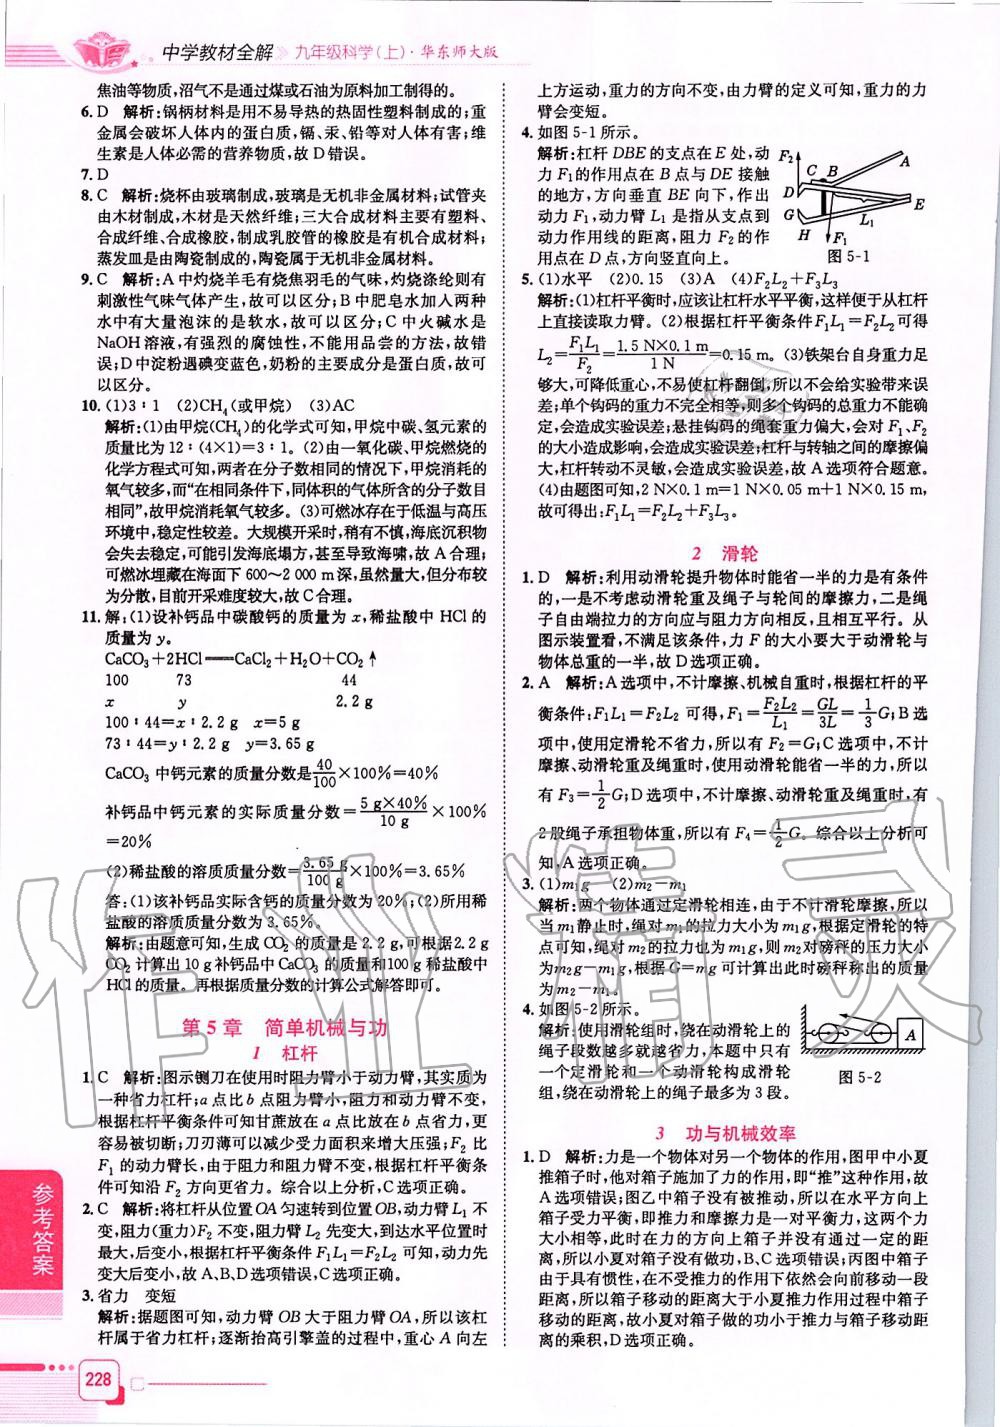 中学教材全解 九年级科学(上)·华东师大版
焦油等物质,沼气不是通过煤或石油为原料加工制得的。
6. D 解析:锅柄材料是用不易导热的热固性塑料制成的;重
金属会破坏人体内的蛋白质,镉、汞、铅等对人体有害;维
生素是人体必需的营养物质,故 D 错误。
7. D
8. C 解析:烧杯由玻璃制成,玻璃是无机非金属材料;试管夹
由木材制成,木材是天然纤维;三大合成材料主要有塑料、
合成纤维、合成橡胶,制成乳胶管的橡胶是有机合成材料;
蒸发皿是由陶瓷制成的,陶瓷属于无机非金属材料。
9. C 解析:A 中灼烧羊毛有烧焦羽毛的气味,灼烧涤纶则有
刺激性气味气体产生,故可以区分;B 中肥皂水加入两种
水中有大量泡沫的是软水,故可以区分;C 中火碱水是
NaOH 溶液,有强烈的腐蚀性,不能用品尝的方法,故错
误;D 中淀粉遇碘变蓝色,奶粉的主要成分是蛋白质,故可
以区分。
10. (1)3∶1 (2)CH4(或甲烷) (3)AC
解析:(1)由甲烷(CH4)的化学式可知,甲烷中碳、氢元素的
质量比为 12∶(4×1)=3∶1。(2)由一氧化碳、甲烷燃烧的
化学方程式可知,两者在分子数相同的情况下,甲烷消耗的
氧气较多,而“在相同条件下,同体积的气体所含的分子数目
相同”,故甲烷消耗氧气较多。(3)可燃冰存在于低温与高压
环境中,稳定性较差。大规模开采时,稍有不慎,海底沉积物
会失去稳定,可能引发海底塌方,甚至导致海啸,故 A 合理;
可燃冰埋藏在海面下 600~2 000 m 深,虽然量大,但分布较
为分散,目前开采难度较大,故 C 合理。
11. 解:(1)设补钙品中碳酸钙的质量为 x,稀盐酸中 HCl 的
质量为 y。
CaCO3+2HCl══CaCl2+H2O+CO2↑
100 73 44
x y 2.2 g
100∶44=x∶2.2 g x=5 g
73∶44=y∶2.2 g y=3.65 g
CaCO3 中钙元素的质量分数是40/100×100%=40%
补钙品中钙元素的实际质量分数=5 g×40%/10 g×100%
=20%
(2)稀盐酸的溶质质量分数=3.65 g/100 g×100%=3.65%
答:(1)该补钙品实际含钙的质量分数为 20%;(2)所用稀
盐酸的溶质质量分数为 3.65%。
解析:由题意可知,生成 CO2 的质量是 2.2 g,可根据2.2 g
CO2 计算出 10 g 补钙品中 CaCO3 的质量和100 g 稀盐酸中
HCl 的质量。再根据质量分数的计算公式解答即可。
第 5 章 简单机械与功
1 杠杆
1. C 解析:图示铡刀在使用时阻力臂小于动力臂,其实质为
一种省力杠杆;a 点比 b 点阻力臂小,阻力和动力臂不变,
根据杠杆平衡条件可知甘蔗放在 a 点比放在 b 点省力,更
容易被切断;刀刃薄可以减少受力面积来增大压强;F2 比
F1 的动力臂长,由于阻力和阻力臂不变,根据杠杆平衡条
件可知沿 F2 方向更省力。综合以上分析,C选项正确。
2. C 解析:将杠杆从位置OA 匀速转到位置OB,动力臂 L1 不
变,阻力(重力)F2 不变,阻力臂 L2 先变大,到达水平位置时
最大,后变小,根据杠杆平衡条件 F1L1=F2L2 可知,动力先
变大后变小,故 A、B、D选项错误,C选项正确。
3. 省力 变短
解析:据题图可知,动力臂 OB 大于阻力臂 OA,所以该杠
杆属于省力杠杆;逐渐抬高引擎盖的过程中,重心 A 向左
上方运动,重力的方向不变,由力臂的定义可知,重力的力
臂会变短。
4. 如图 5-1 所示。
解析:杠杆 DBE 的支点在 E 处,动
力 F1 的作用点在 B 点与 DE 接触
的地方,方向垂直 BE 向下,作出
动力 F1,动力臂 L1 是指从支点到
动力作用线的距离,阻力 F2 的作
用点在 D 点,方向竖直向上。
F2
A
C B
D
E
G
L1
H F1
图 5-1
5. (1)水平 (2)0.15 (3)A (4)F2L2+F3L3
解析:(1)杠杆平衡时,应该让杠杆水平平衡,这样便于从杠杆
上直接读取力臂。(2)根据杠杆平衡条件F1L1=F2L2 可得
L2=F1L1/F2=1.5 N×0.1 m/1 N=0.15 m。(3)铁架台自身重力足
够大,可降低重心,不易使杠杆翻倒,所以不会给实验带来误
差;单个钩码的重力不完全相等,则多个钩码的总重力不能确
定,会造成实验误差;悬挂钩码的绳套重力偏大,会对 F1、F2
的大小造成影响,会造成实验误差;杠杆与转轴之间的摩擦偏
大,杠杆转动不灵敏,会造成实验误差,故 A 选项符合题意。
(4)由题图可知,2 N×0.1 m=1 N×0.05 m+1 N×0.15 m,
故可得出:F1L1=F2L2+F3L3。
2 滑轮
1. D 解析:利用动滑轮提升物体时能省一半的力是有条件
的,一是不考虑动滑轮重及绳子与轮间的摩擦力,二是绳
子自由端拉力的方向应与阻力方向相反,且相互平行。从
图示装置看,不满足该条件,力 F 的大小要大于动滑轮与
物体总重的一半,故 D 选项正确。
2. A 解析:A选项中,不计摩擦、机械自重时,根据杠杆的平
衡条件:F1L1=F2L2 可得,F1=F2L2/L1=GL/3L=1/3G;B 选
项中,使用定滑轮不省力,所以有 F2=G;C 选项中,不计
摩擦、动滑轮重及绳重时,使用动滑轮能省一半的力,所以
有 F3=1/2G;D选项中,不计摩擦、动滑轮重及绳重时,有
2 股绳子承担物体重,所以有 F4=1/2G。综合以上分析可
知,A 选项正确。
3. (1)m1g (2)m2-m1
解析:两个物体通过定滑轮相连,由于不计滑轮摩擦,所以
当 m1静止时,绳对 m1的拉力大小为 m1g,根据定滑轮的特
点可知,绳对 m2的拉力也为 m1g,则 m2对磅秤的压力大小
为m2g-m1g,根据 G=mg 可计算出此时磅秤称出的质量
为 m2-m1。
4. 如图 5-2 所示。
解析:使用滑轮组时,绕在动滑轮上的
绳子段数越多就越省力,本题中只有
一个定滑轮和一个动滑轮构成滑轮
组,绕在动滑轮上的绳子最多为 3 段。
A
图 5-2
3 功与机械效率
1. D 解析:力是一个物体对另一个物体的作用,图甲中小夏
推箱子时,他对箱子施加了力的作用,即“推”这种作用,故
A选项错误;图乙中箱子没有被推动,所以在水平方向上
箱子受力平衡,即推力和摩擦力是一对平衡力,这两个力
大小相等,此时在力的方向上箱子并没有通过一定的距
离,所以小夏对箱子没有做功,B、C 选项错误;丙图中箱子
由于具有惯性,在不受推力的作用下依然会向前移动一段
距离,所以箱子移动的距离大于小夏推力作用过程中箱子
移动的距离,故小夏对箱子做的功小于推力与箱子移动距
离的乘积,D选项正确。
参考答案
228
作业精灵